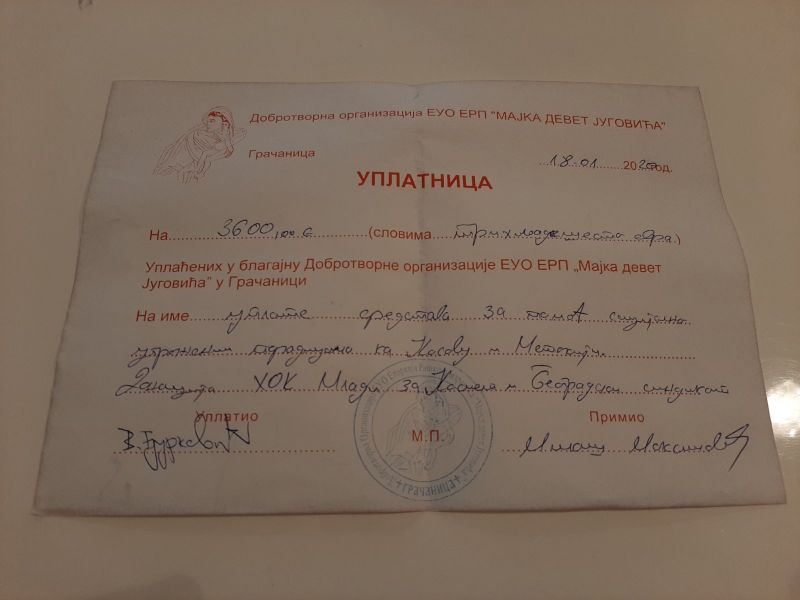 Добротворна организација ЕУО ЕРП "МАЈКА ДЕВЕТ ЈУГОВИЋА"
Грачаница
18.01 2020 год.
УПЛАТНИЦА
На 3600,00 € (словима трихиљадешесто евра.)
Уплаћених у благајну Добротворне организације ЕУО ЕРП „Мајка девет
Југовића" у Грачаници
На име уплате средстава за помоћ социјално
угроженим породицама на Косову и Метохији.
Донација ХОК Млади за Космет и Београдски синдикат
Уплатио М.П. Примио
В. Ђурковић Милан Максимовић
ГРАЧАНИЦА